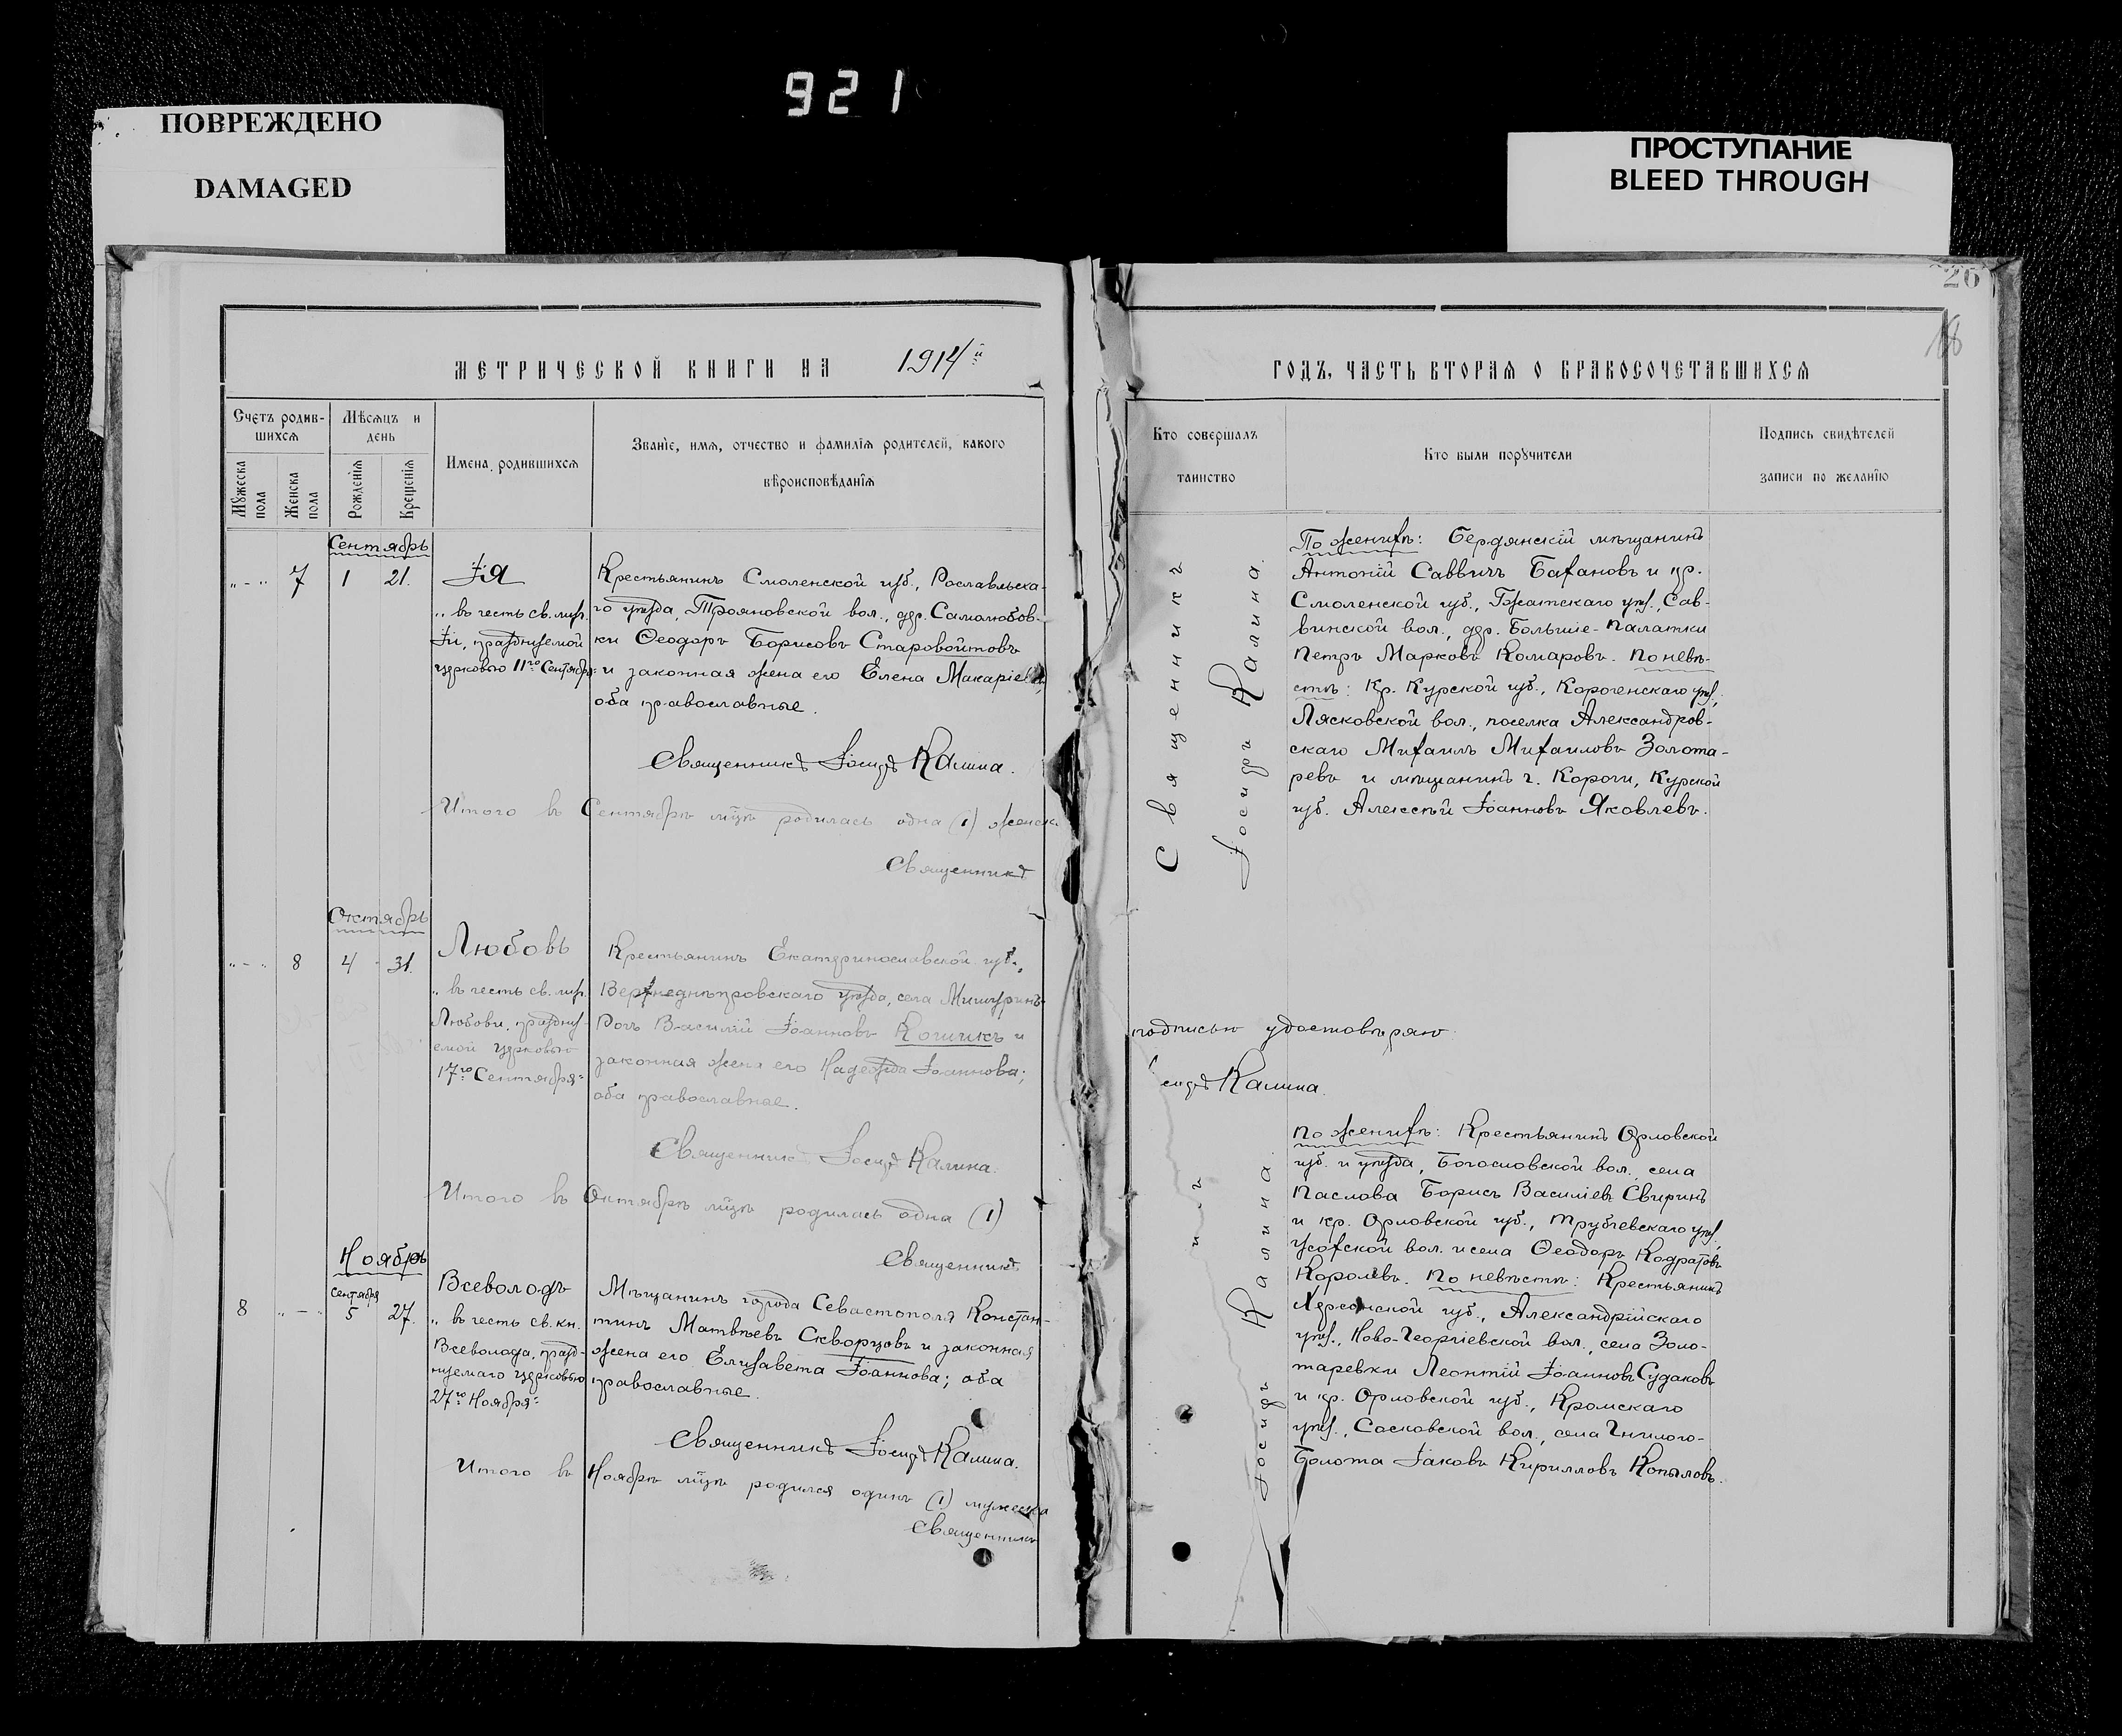 921
ПОВРЕЖДЕНО
DAMAGED
ПРОСТУПАНИЕ
BLEED THROUGH
МЕТРИЧЕСКОЙ КНИГИ НА 1914й
Счетъ родив-
шихся
Мѣсяцъ и
день
Мужеска
пола
Женска
пола
Рожденія
Крещенія
Имена родившихся
Званіе, имя, отчество и фамилія родителей, какого
вѣроисповѣданія
Сентябрь
"-" 7 1 21.
Ія
„въ честь св. муч.
Іи, празднуемой
церковью 11го Сентября=
Крестьянинъ Смоленской губ., Рославльска-
го уѣзда, Трояновской вол., дер. Самолюбов-
ки Ѳеодоръ Борисовъ Старовойтовъ
и законная жена его Елена Макаріева,
оба православные.
Священникъ Іосифъ Калина.
Итого въ Сентябрѣ мцѣ родилась одна (1) женска
Священникъ
Октябрь
"-" 8 4 31.
Любовь
„въ честь св. муч.
Любови, праздну-
емой церковью
17го Сентября=
Крестьянинъ Екатеринославской губ.,
Верхнеднѣпровскаго уѣзда, села Мишуринъ-
Рогъ Василій Іоанновъ Кошикъ и
законная жена его Надежда Іоаннова;
оба православные.
Священникъ Іосифъ Калина.
Итого въ Октябрѣ мцѣ родилась одна (1)
Священникъ
Ноябрь
Сентября
8 "-" 5 27.
Всеволодъ
„въ честь св. кн.
Всеволода, празд-
нуемаго церковью
27го Ноября=
Мѣщанинъ города Севастополя Констан-
тинъ Матвѣевъ Скворцовъ и законная
жена его Елизавета Іоаннова; оба
православные.
Священникъ Іосифъ Калина.
Итого въ Ноябрѣ мцѣ родился одинъ (1) мужеска
Священникъ
26
18
ГОДЪ, ЧАСТЬ ВТОРАЯ О БРАКОСОЧЕТАВШИХСЯ
Кто совершалъ
таинство
Кто были поручители
Подпись свидѣтелей
записи по желанію
Священникъ
Іосифъ Калина.
По женихѣ: Бердянскій мѣщанинъ
Антоній Саввичъ Бахановъ и кр.
Смоленской губ., Гжатскаго уѣз., Сав-
винской вол., дер. Больше-Палатки
Петръ Марковъ Комаровъ. По невѣ-
стѣ: Кр. Курской губ., Корочен­скаго уѣз.,
Лясковской вол., поселка Александров-
скаго Михаилъ Михаиловъ Золота-
ревъ и мѣщанинъ г. Корочи, Курской
губ. Алексѣй Іоанновъ Яковлевъ.
подписью удостовѣряю
Калина.
Іосифъ Калина.
По женихѣ: Крестьянинъ Орловской
губ. и уѣзда, Богословской вол., села
Паслова Борисъ Василіевъ Свиринъ
и кр. Орловской губ., Трубчевскаго уѣз.,
Усохской вол. и села Ѳеодоръ Кодратовъ
Королевъ. По невѣстѣ: Крестьянинъ
Херсонской губ., Александрійскаго
уѣз., Ново-Георгіевской вол., села Золо-
таревки Леонтій Іоанновъ Судаковъ
и кр. Орловской губ., Кромскаго
уѣз., Сосковской вол., села Гнилого-
Болота Іаковъ Кирилловъ Копыловъ.